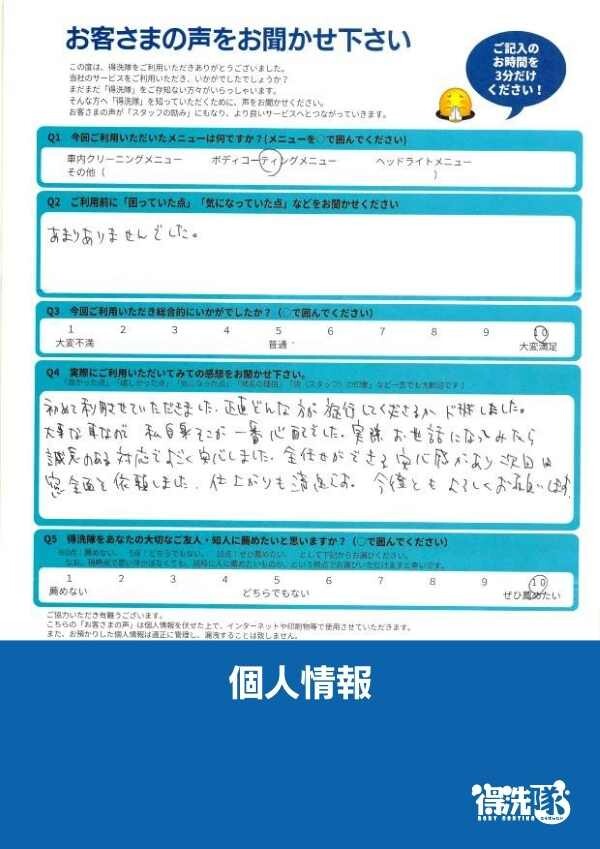 お客さまの声をお聞かせ下さい
ご記入の
お時間を
3分だけ
ください!
この度は、得洗隊をご利用いただきありがとうございました。
当社のサービスをご利用いただき、いかがでしたでしょうか?
まだまだ「得洗隊」をご存知ない方々がいらっしゃいます。
そんな方へ「得洗隊」を知っていただくために、声をお聞かせください。
お客さまの声が「スタッフの励み」にもなり、より良いサービスへとつながっていきます。
Q1 今回ご利用いただいたメニューは何ですか?(メニューを○で囲んでください)
車内クリーニングメニュー ボディコーティングメニュー ヘッドライトメニュー
その他( )
Q2 ご利用前に「困っていた点」「気になっていた点」などをお聞かせください
あまりありませんでした。
Q3 今回ご利用いただき総合的にいかがでしたか?(○で囲んでください)
1 2 3 4 5 6 7 8 9 10
大変不満 普通 大変満足
Q4 実際にご利用いただいてみての感想をお聞かせ下さい。
初めて利用させていただきました。正直どんな方が施行してくださるかドキドキしました。
大事な車なので 私自身そこが一番心配でした。実際お世話になってみたら
誠意のある対応ですごく安心しました。全任せができる安心感があり次回は
窓全面を依頼しました。仕上がりも満足です。今後ともよろしくお願いします。
Q5 得洗隊をあなたの大切なご友人・知人に薦めたいと思いますか?(○で囲んでください)
1 2 3 4 5 6 7 8 9 10
薦めない どちらでもない ぜひ薦めたい
ご協力いただき有難うございます。
こちらの「お客さまの声」は個人情報を伏せた上で、インターネットや印刷物等で使用させていただきます。
また、お預かりした個人情報は適正に管理し、漏洩することは致しません。
個人情報
得洗隊
BODY COATING